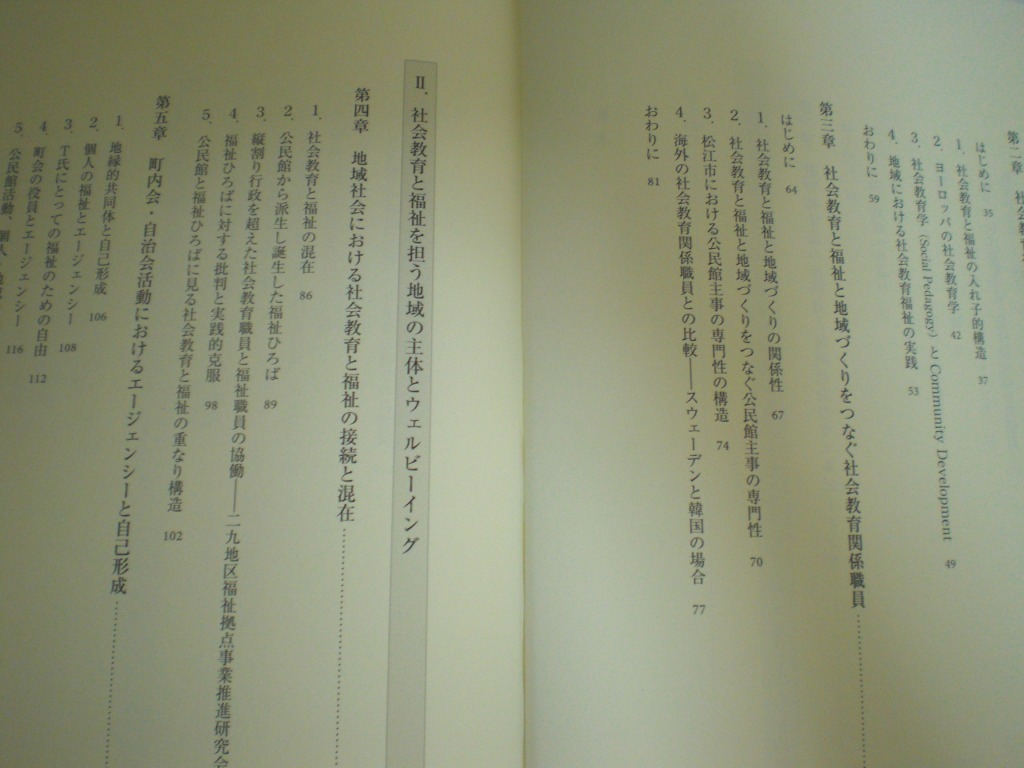 第二章 社会教育
はじめに 35
1. 社会教育と福祉の入れ子的構造 37
2. ヨーロッパの社会教育学 42
3. 社会教育学（Social Pedagogy）とCommunity Development 49
4. 地域における社会教育福祉の実践 53
おわりに 59
第三章 社会教育と福祉と地域づくりをつなぐ社会教育関係職員
はじめに 64
1. 社会教育と福祉と地域づくりの関係性 67
2. 社会教育と福祉と地域づくりをつなぐ公民館主事の専門性 70
3. 松江市における公民館主事の専門性の構造 74
4. 海外の社会教育関係職員との比較――スウェーデンと韓国の場合 77
おわりに 81
Ⅱ. 社会教育と福祉を担う地域の主体とウェルビーイング
第四章 地域社会における社会教育と福祉の接続と混在
1. 社会教育と福祉の混在 86
2. 公民館から派生し誕生した福祉ひろば 89
3. 縦割り行政を超えた社会教育職員と福祉職員の協働――二九地区福祉拠点事業推進研究会
4. 福祉ひろばに対する批判と実践的克服 98
5. 公民館と福祉ひろばに見る社会教育と福祉の重なり構造 102
第五章 町内会・自治会活動におけるエージェンシーと自己形成
1. 地縁的共同体と自己形成 106
2. 個人の福祉とエージェンシー 108
3. T氏にとっての福祉のための自由 112
4. 町会の役員とエージェンシー 116
5. 公民館活動、個人